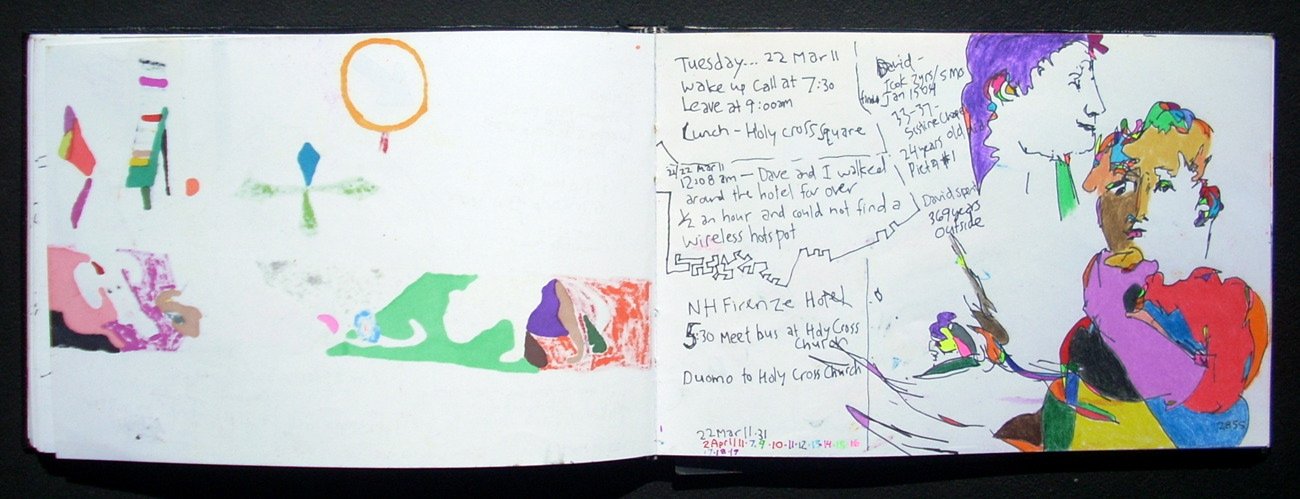 Tuesday... 22 Mar 11
Wake up Call at 7:30
Leave at 9:00am
Lunch - Holy cross square
22 Mar 11
12:08 am - Dave and I walked
around the hotel for over
1/2 an hour and could not find a
wireless hotspot
NH Firenze Hotel
5:30 meet bus at Holy Cross
Church
Duomo to Holy Cross Church
22 Mar 11.31
2 April 11.7.9.10.11.12.13.14.15.16
17.18.19
David -
Took 2yrs/5mo
Jan 1504
33-37-
Sistine
24 years old
Pieta #1
David spent
369 years
outside
2855